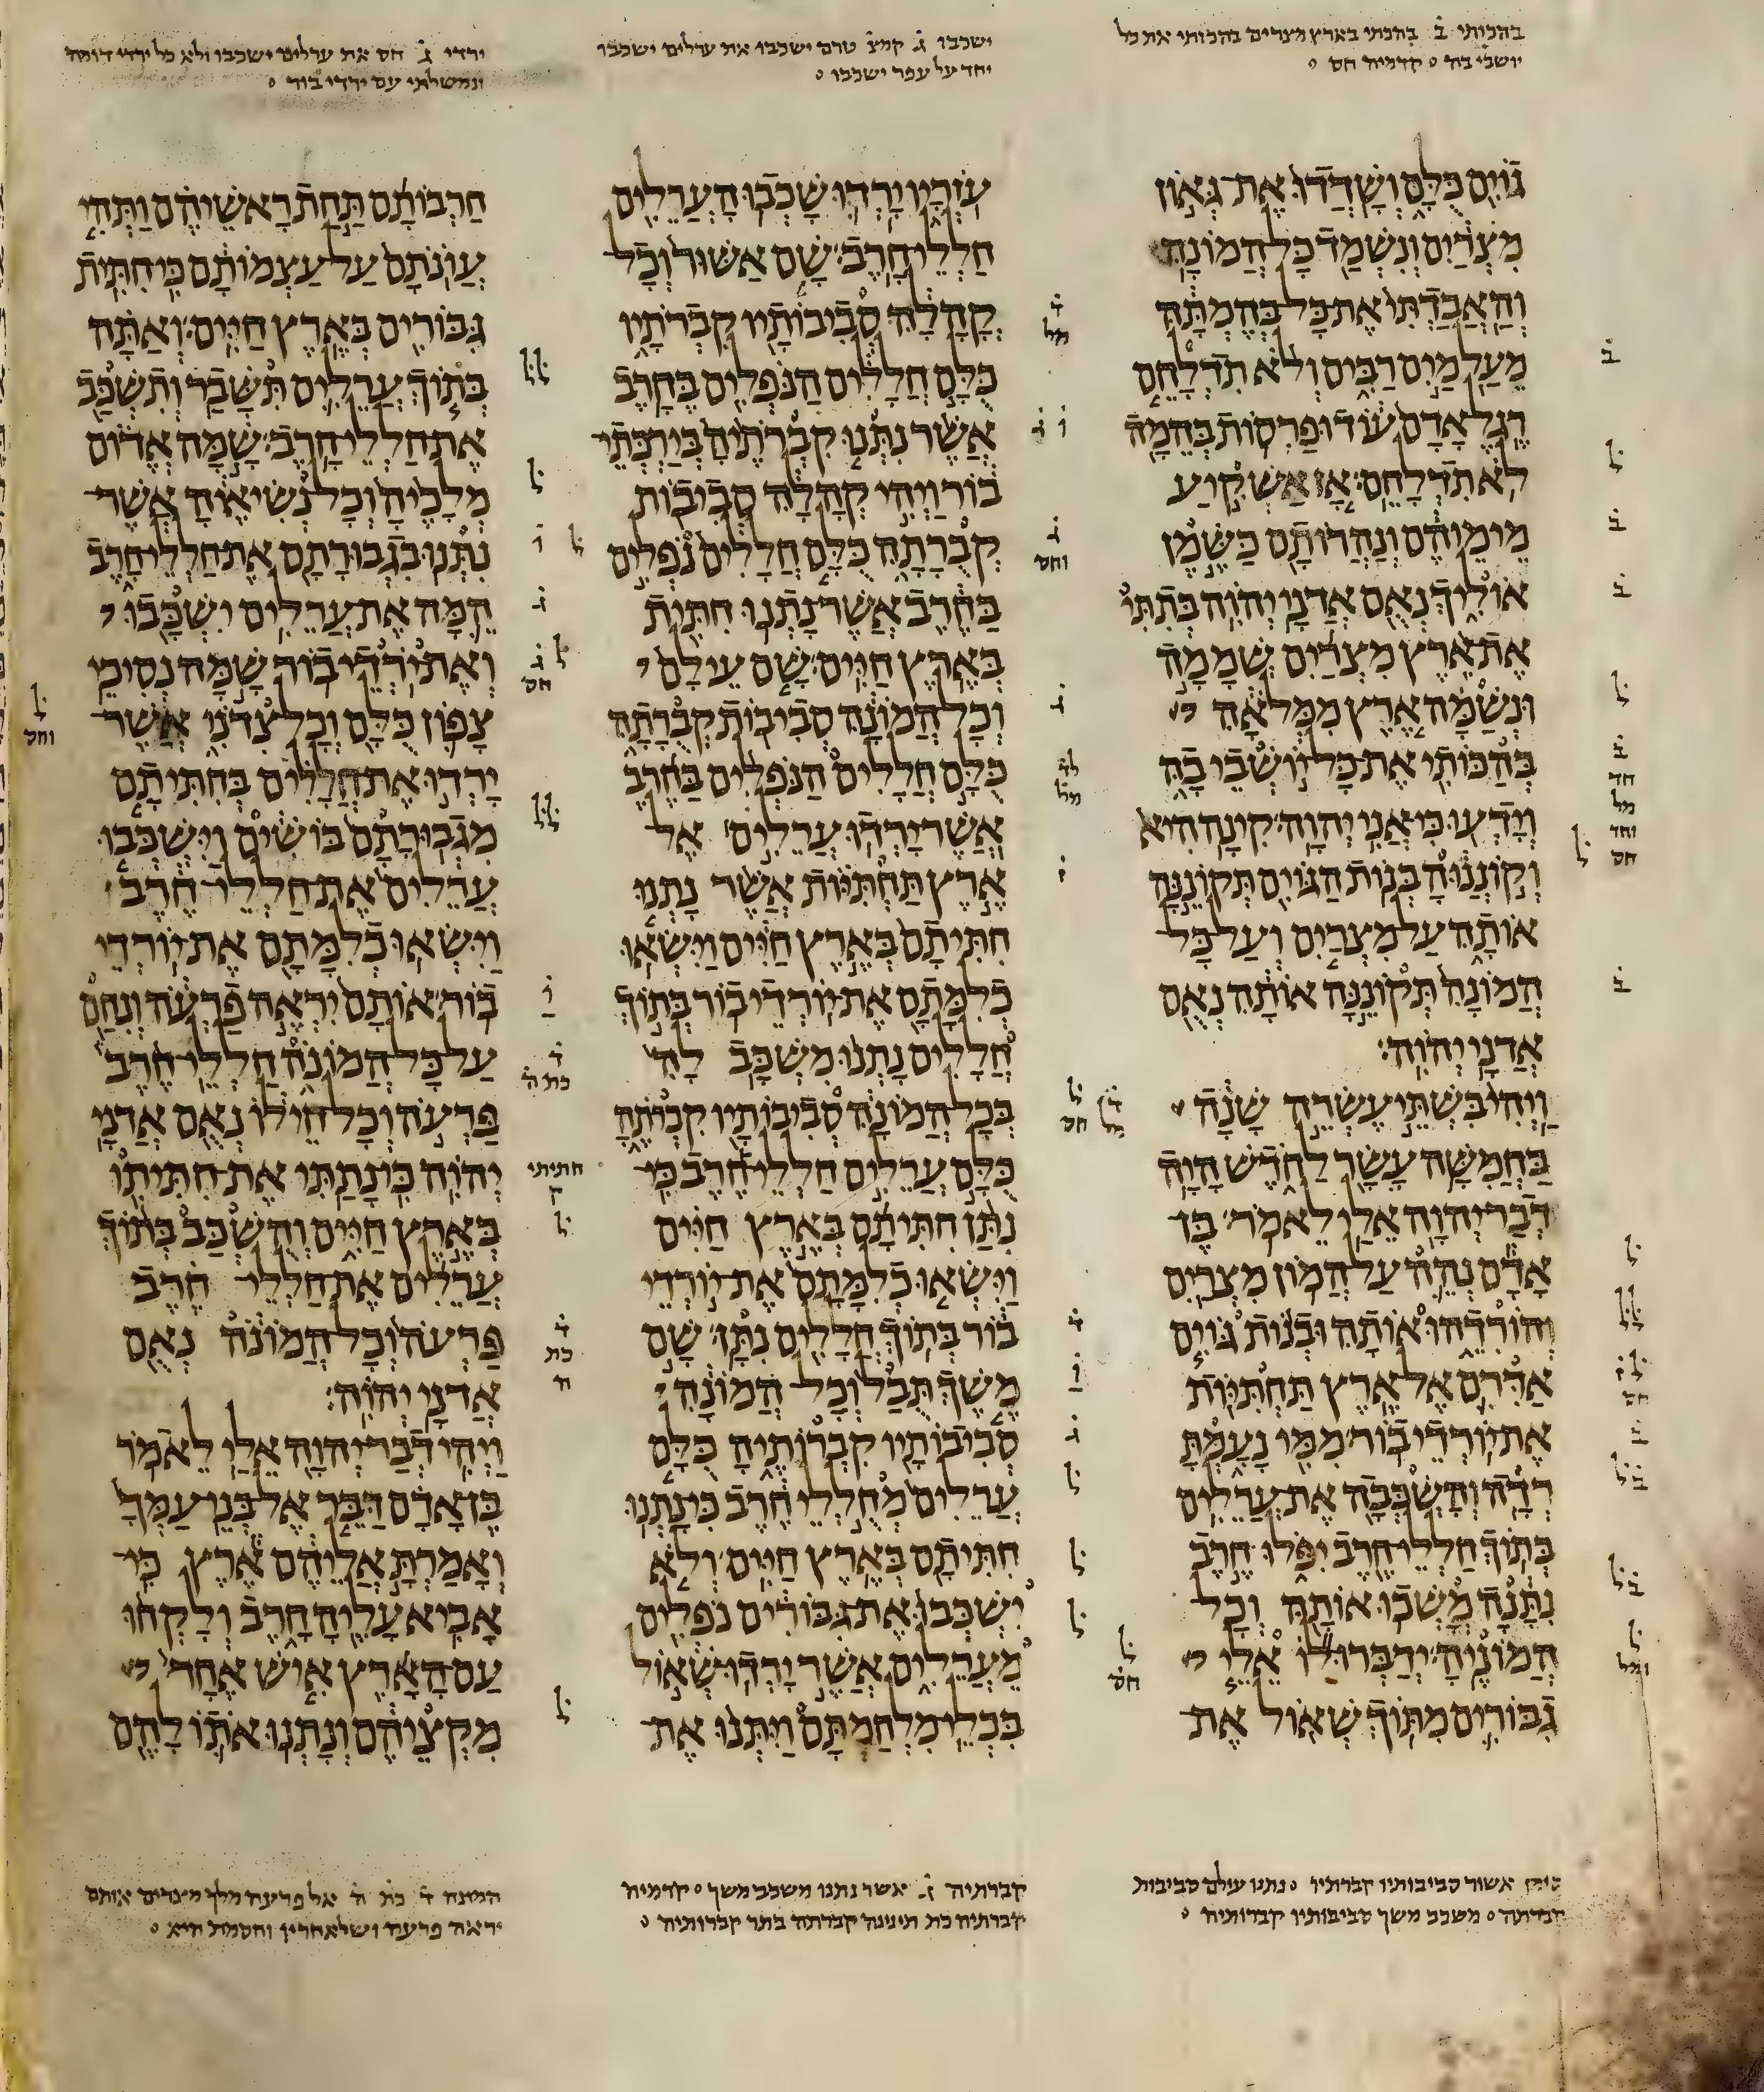 בהכותי ב בהכתי בארץ מצרים בהכותי את כל
יושבי בה ׄ קדמיה חס ׄ
ישכבו ג קמצ טרם ישכבו את ערלים ישכבו
יחד על עפר ישכבו ׄ
ירדי ג חס את ערלים ישכבו ולא כל ירדי דומה
ונמשלתי עם ירדי בור ׄ
גוים כלם ושדדו את־גאון
מצרים ונשמד כל המונה
והאבדתי את כל בהמתה
מעל מים רבים ולא תדלחם
רגל אדם עוד ופרסות בהמה
לא תדלחם׃ אז אשקיע
מימיהם ונהרותם כשמן
אוליך נאם אדני יהוה׃ בתתי
את ארץ מצרים שממה
ונשמה ארץ ממלאה
בהכותי את־כל־יושבי בה
וידעו כי אני יהוה׃ קינה היא
וקוננוה בנות הגוים תקוננה
אותה על מצרים ועל כל
המונה תקוננה אותה נאם
אדני יהוה׃
ויהי בשתי עשרה שנה
בחמשה עשר לחדש היה
דבר יהוה אלי לאמר׃ בן
אדם נהה על המון מצרים
והורדהו אותה ובנות גוים
אדרם אל ארץ תחתיות
את־יורדי בור׃ ממי נעמת
רדה והשכבה את־ערלים׃
בתוך חללי חרב יפלו חרב
נתנה משכו אותה וכל
המוניה׃ ידברו־לו אלי
גבורים מתוך שאול את־
עזריו ירדו שכבו הערלים
חללי חרב׃ שם אשור וכל
קהלה סביבותיו קברתיו
כלם חללים הנפלים בחרב׃
אשר נתנו קברתיה בירכתי־
בור ויהי קהלה סביבות
קברתה כלם חללים נפלים
בחרב אשר נתנו חתית
בארץ חיים׃ שם עילם
וכל המונה סביבות קברתה
כלם חללים הנפלים בחרב
אשר ירדו ערלים אל
ארץ תחתיות אשר נתנו
חתיתם בארץ חיים וישאו
כלמתם את־יורדי בור׃ בתוך
חללים נתנו משכב לה
בכל המונה סביבותיו קברתה
כלם ערלים חללי חרב כי
נתן חתיתם בארץ חיים
וישאו כלמתם את־יורדי
בור בתוך חללים נתן׃ שם
משך תבל וכל־המונה
סביבותיו קברותיה כלם
ערלים מחללי חרב כי נתנו
חתיתם בארץ חיים׃ ולא
ישכבו את־גבורים נפלים
מערלים אשר ירדו־שאול
בכלי מלחמתם ויתנו את־
חרבותם תחת ראשיהם ותהי
עונתם על עצמותם כי חתית
גבורים בארץ חיים׃ ואתה
בתוך ערלים תשבר ותשכב
את חללי חרב׃ שמה אדום
מלכיה וכל נשיאיה אשר־
נתנו בגבורתם את חללי חרב
המה את ערלים ישכבו
ואת ירדי בור׃ שמה נסיכי
צפון כלם וכל צדני אשר־
ירדו את חללים בחתיתם
מגבורתם בושים וישכבו
ערלים את חללי־חרב
וישאו כלמתם את־יורדי
בור׃ אותם יראה פרעה ונחם
על כל המונה חללי חרב
פרעה וכל חילו נאם אדני
יהוה׃ כי נתתי את־חתיתו
בארץ חיים והשכב בתוך
ערלים את חללי־חרב
פרעה וכל המונה נאם
אדני יהוה׃
ויהי דבר יהוה אלי לאמר׃
בן אדם דבר אל בני עמך
ואמרת אליהם ארץ כי־
אביא עליה חרב ולקחו
עם הארץ איש אחד
מקציהם ונתנו אתו להם
חתיתי
ק
סימן אשור סביבותיו קברתיו ׄ נתנו עילם סביבות
קברתה ׄ משכב משך סביבותיו קברותיה ׄ
קברתיה ג אשר נתנו משכב משך ׄ קדמיה
קברתיה כת תינינה קברתה בתר קברותיה ׄ
המונה ד כת ה אל פרעה מלך מצרים אותם
יראה פרעה ושלאחריו וחסמת היא ׄ